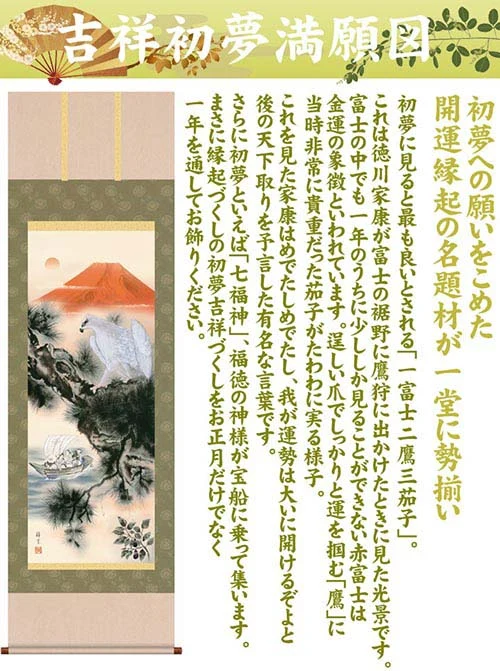 吉祥初夢満願図
初夢への願いをこめた
開運縁起の名題材が一堂に勢揃い
初夢に見ると最も良いとされる「一富士二鷹三茄子」。
これは徳川家康が富士の裾野に鷹狩に出かけたときに見た光景です。
富士の中でも一年のうちに少ししか見ることができない赤富士は
金運の象徴といわれています。逞しい爪でしっかりと運を掴む「鷹」に
当時非常に貴重だった茄子がたわわに実る様子。
これを見た家康はめでたしめでたし、我が運勢は大いに開けるぞよと
後の天下取りを予言した有名な言葉です。
さらに初夢といえば「七福神」、福徳の神様が宝船に乗って集います。
まさに縁起づくしの初夢吉祥づくしをお正月だけでなく
一年を通してお飾りください。